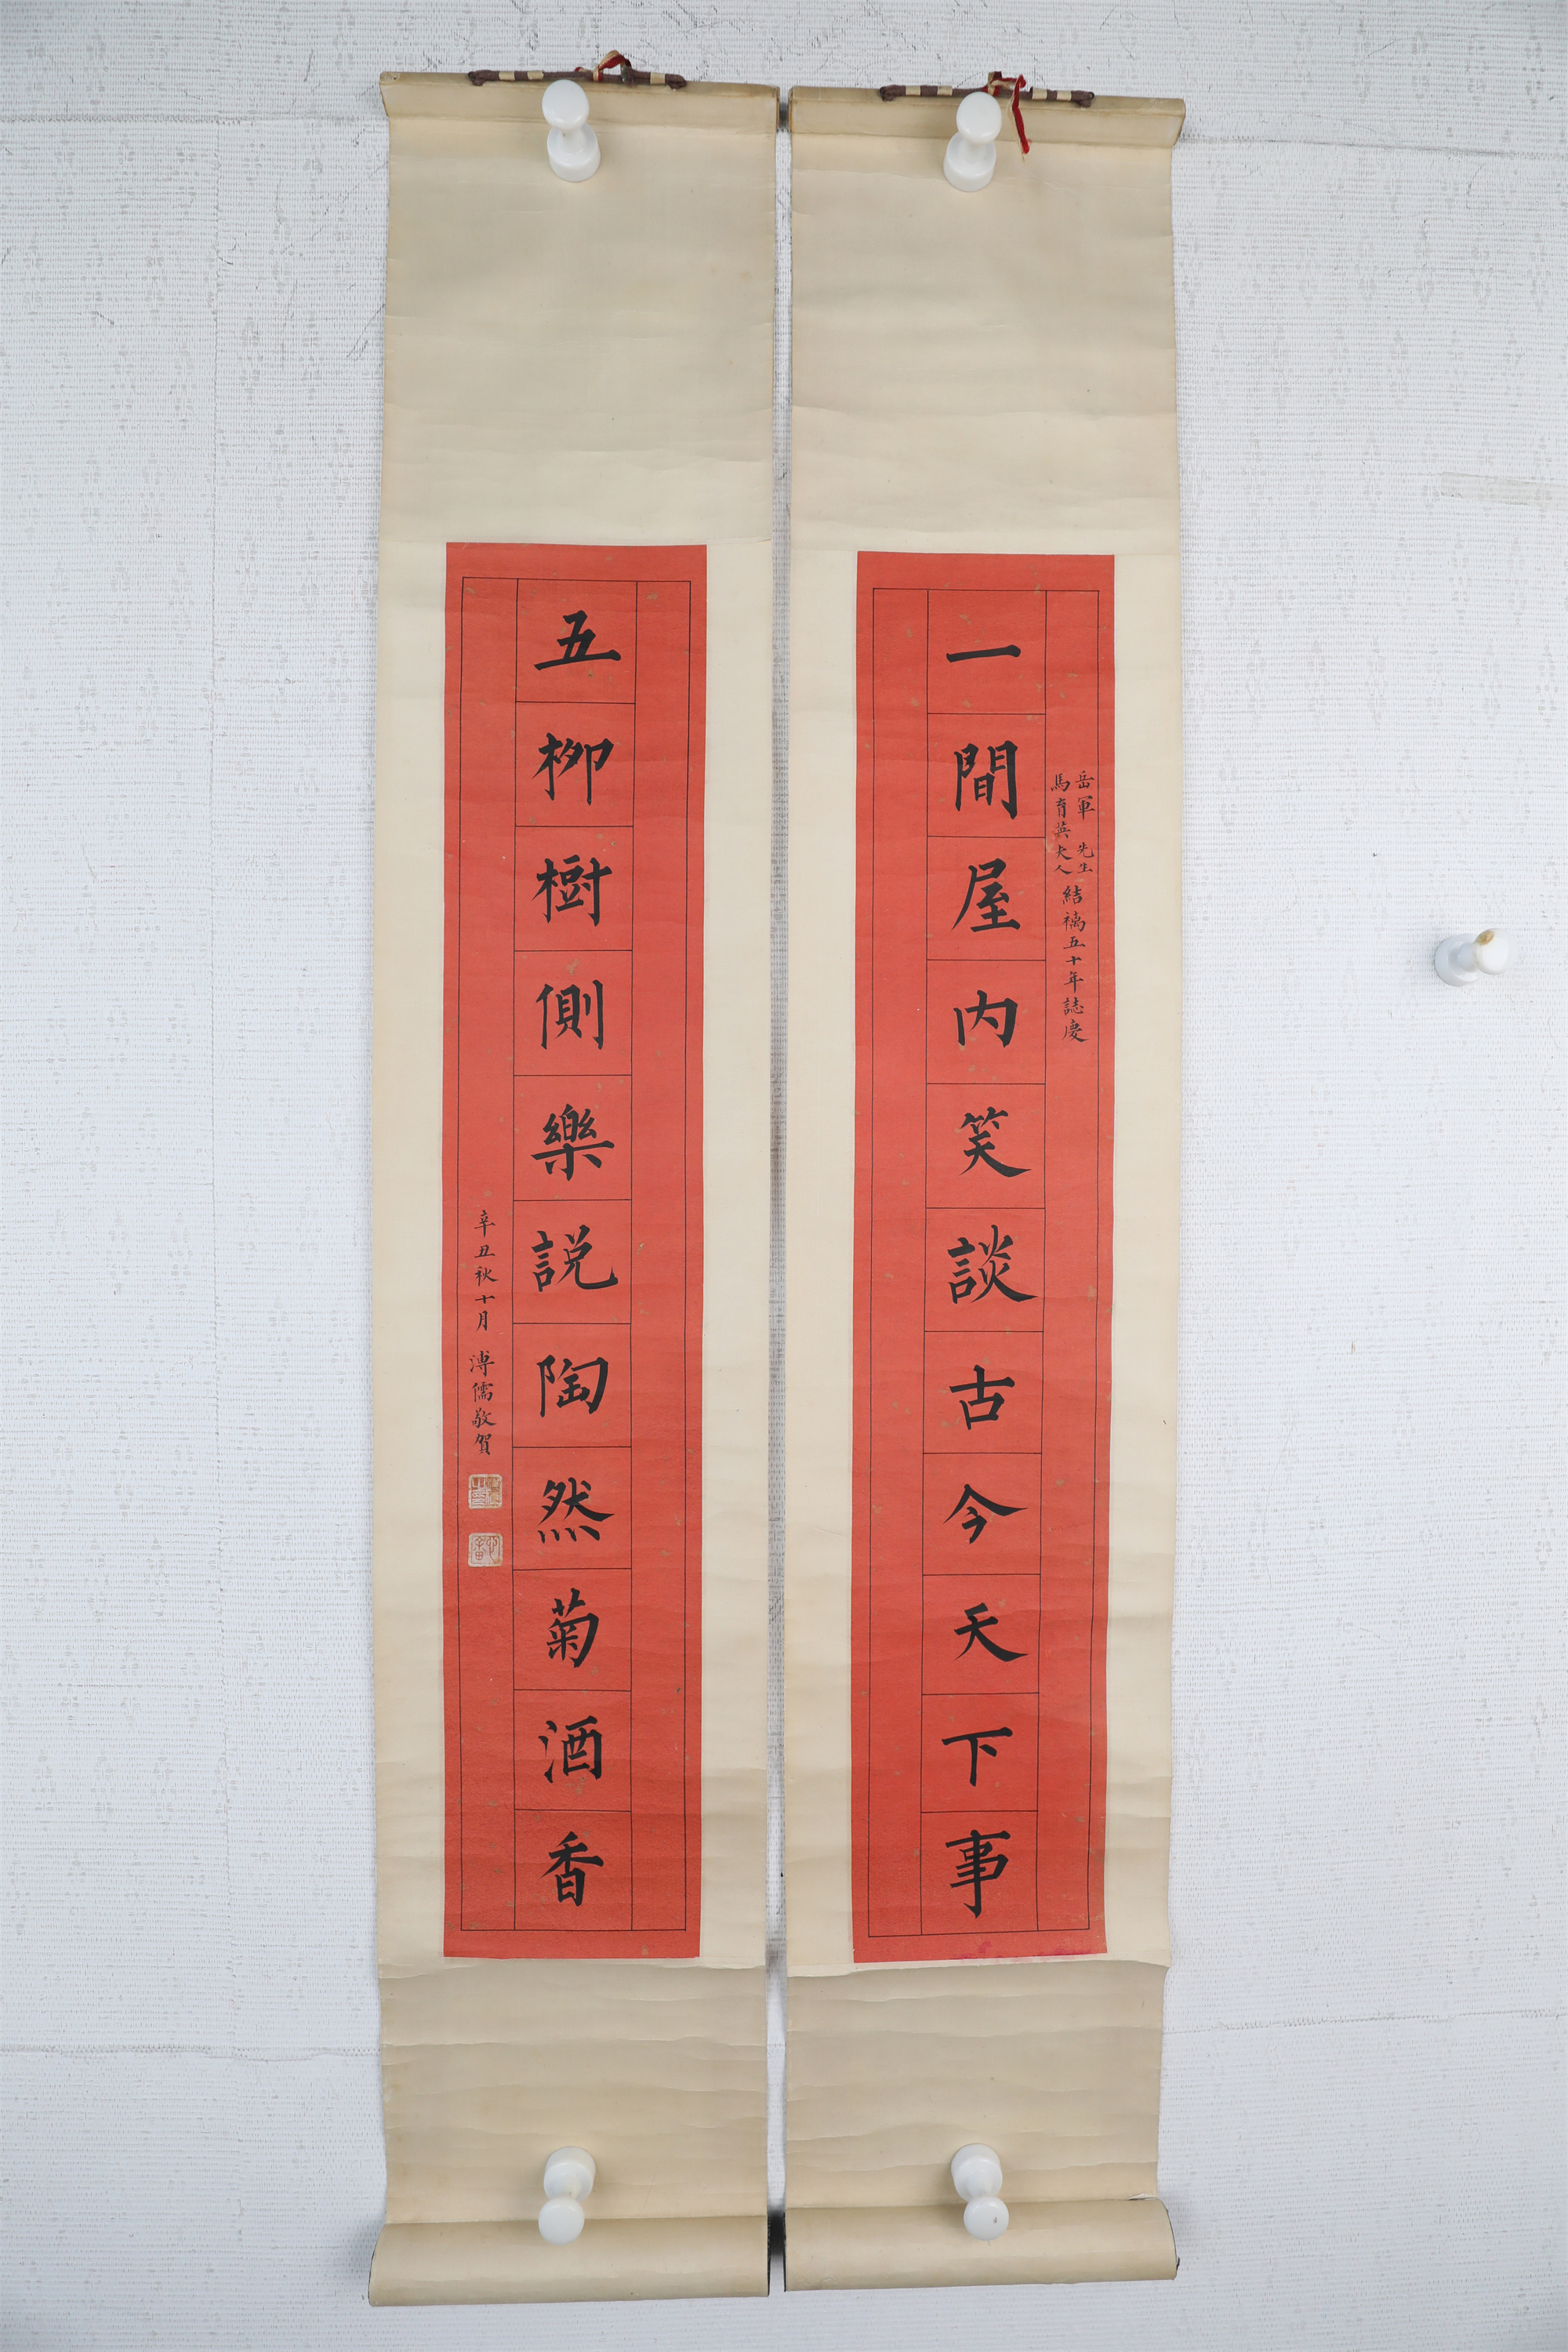 岳軍先生
馬育英夫人
結褵五十年誌慶
一間屋内笑談古今天下事
五柳樹側樂説陶然菊酒香
辛丑秋十月 溥儒敬賀